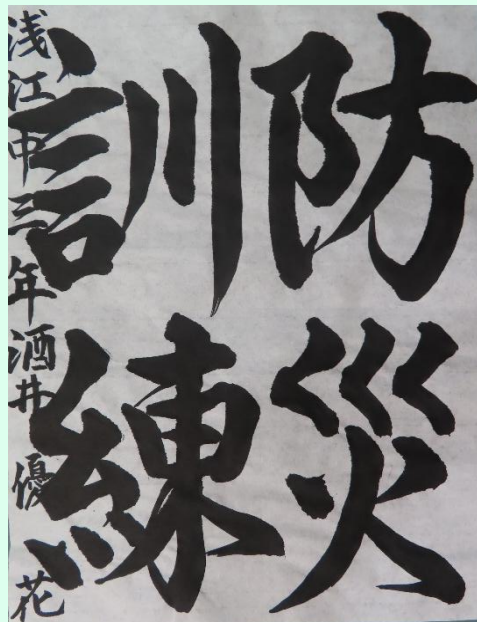 防災
訓練
浅江中三年酒井優花